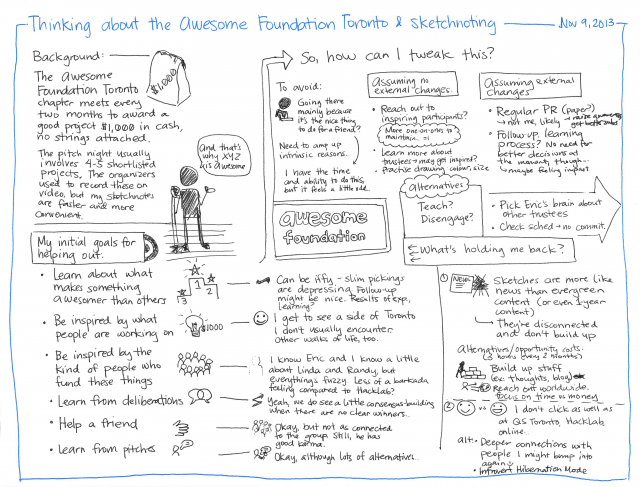 Thinking about the Awesome Foundation Toronto & sketchnoting
Nov 9, 2013
Background:
$1,000
The Awesome
Foundation Toronto
chapter meets every
two months to award a
good project $1,000 in cash,
no strings attached.
The pitch night usually
involves 4-5 shortlisted
projects. The organizers
used to record these on
video, but my sketchnotes
are faster and more
convenient.
And that's
why XYZ
is awesome
My initial goals for
helping out:
• Learn about what
makes something
awesomer than others
2 1 3
• Be inspired by what
people are working on
$1000
• Be inspired by the
kind of people who
fund these things
• Learn from deliberations
• Help a friend
• Learn from pitches
Can be iffy - slim pickings
are depressing. Follow-up
might be nice. Results of exp,
learning?
I get to see a side of Toronto
I don't usually encounter.
Other walks of life, too.
I know Eric and I know a little
about Linda and Randy, but
everything's fuzzy. Less of a barkada
feeling compared to HackLab?
Yeah, we do see a little consensus-building
when there are no clear winners...
Okay, but not as connected
to the group. Still, he has
good karma.
Okay, although lots of alternatives...
So, how can I tweak this?
To avoid:
Going there
mainly because
it's the nice thing
to do for a friend?
Need to amp up
intrinsic reasons.
I have the time
and ability to do this,
but it feels a little odd.
awesome
foundation
Assuming no
external changes:
• Reach out to
inspiring participants?
More one-on-ones to
maintain...
• Learn more about
trustees → may get inspired?
• Practise drawing, colour, size
Assuming external
changes
• Regular PR (paper?)
→ not me, likely → raise awareness,
get better subs
• Follow up, learning
process? No need for
better decisions at
the moment, though -
maybe feeling impact
alternatives
Teach?
Disengage?
• Pick Eric's brain about
other trustees
• Check sched → no commit.
What's holding me back?
1
NEWS
Sketches are more like
news than evergreen
content (or even 1-year
content)
→ They're disconnected
and don't build up
Alternatives/opportunity costs:
Build up stuff
(ex: thoughts, blog)
Reach out worldwide.
Focus on time vs money
2
vs
I don't click as well as
at QS Toronto, HackLab,
online...
alt: • Deeper connections with
people I might bump into
again
• Introvert Hibernation Mode